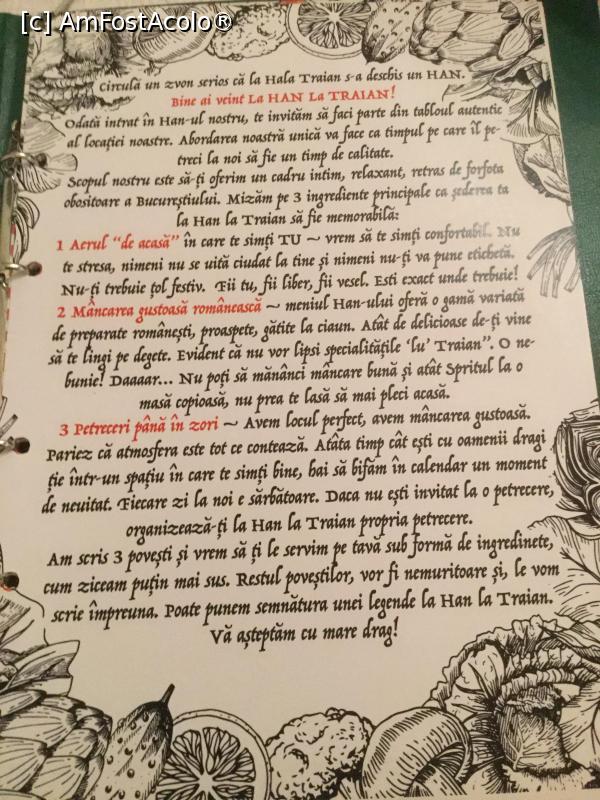 [c] AmFostAcolo®
Circulă un zvon serios că la Hala Traian s-a deschis un HAN.
Bine ai veint LA HAN La TRAIAN!
Odată intrat în Han-ul nostru, te invităm să faci parte din tabloul autentic
al locației noastre. Abordarea noastră unică va face ca timpul pe care îl pe-
treci la noi să fie un timp de calitate.
Scopul nostru este să-ți oferim un cadru intim, relaxant, retras de forfota
obositoare a Bucureștiului. Mizăm pe 3 ingrediente principale ca șederea ta
la Han la Traian să fie memorabilă:
1 Aerul “de acasă” în care te simți TU ~ vrem să te simți confortabil. Nu
te stresa, nimeni nu se uită ciudat la tine și nimeni nu-ți va pune etichetă.
Nu-ți trebuie țol festiv. Fii tu, fii liber, fii vesel. Esti exact unde trebuie!
2 Mâncarea gustoasă românească ~ meniul Han-ului oferă o gamă variată
de preparate românești, proaspete, gătite la ciaun. Atât de delicioase de-ți vine
să te lingi pe degete. Evident că nu vor lipsi specialitățile ‘lu’ Traian”. O ne-
bunie! Daaaar... Nu poți să mănânci mâncare bună și atât Spritul la o
masă copioasă, nu prea te lasă să mai pleci acasă.
3 Petreceri până în zori ~ Avem locul perfect, avem mâncarea gustoasă.
Pariez că atmosfera este tot ce contează. Atâta timp cât ești cu oamenii dragi
ție într-un spațiu în care te simți bine, hai să bifăm în calendar un moment
de neuitat. Fiecare zi la noi e sărbătoare. Daca nu ești invitat la o petrecere,
organizează-ți la Han la Traian propria petrecere.
Am scris 3 povești și vrem să ți le servim pe tavă sub formă de ingredinete,
cum ziceam puțin mai sus. Restul poveștilor, vor fi nemuritoare și, le vom
scrie împreuna. Poate punem semnătura unei legende la Han la Traian.
Vă așteptăm cu mare drag!